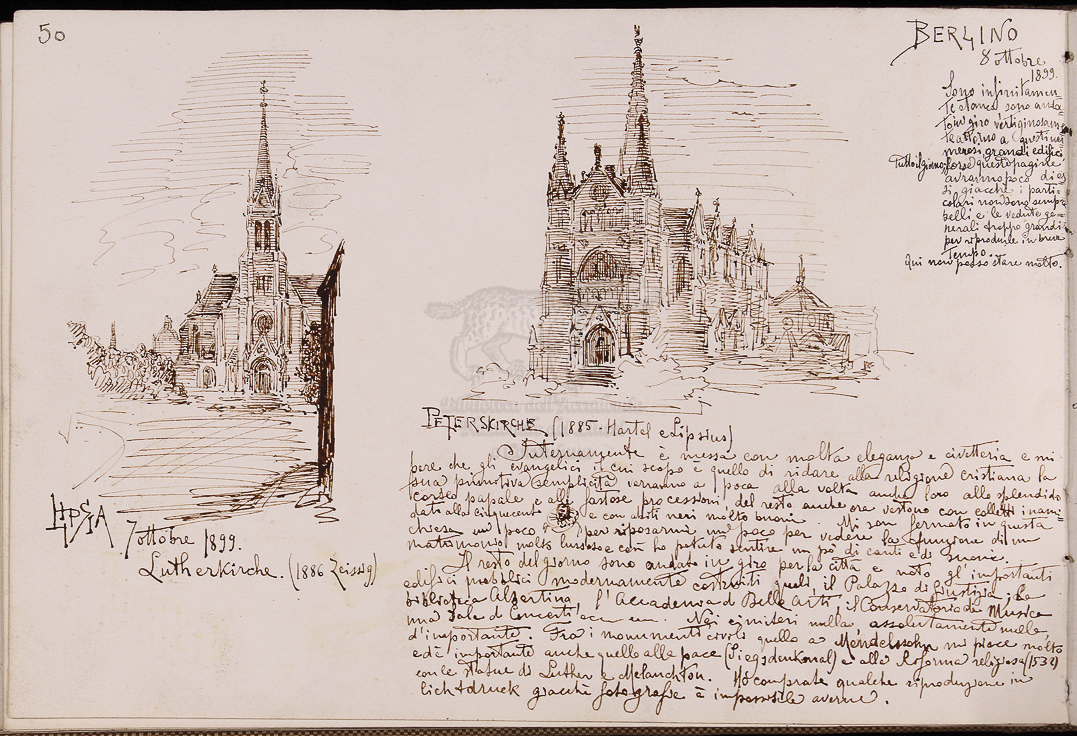 50
LIPSIA
7 ottobre 1899.
Lutherkirche. (1886 Zeissig)
PETERSKIRCHE (1885 - Hartel e Lipsius)
Internamente è messa con molta eleganza e civetteria e mi
pere che gli evangelici il cui scopo è quello di ridare alla religione cristiana la
sua primitiva semplicità verranno a poca alla volta anche loro allo splendido
corseo papale e alle fastose processioni, del resto anche ora vestono con colletti inami
dati alla cinquecento e con abiti neri molto buoni. Mi son fermato in questa
chiesa un poco per riposarmi un poco per vedere la funzione di un
matrimonio molto lussoso e così ho potuto sentire un po' di canti e di suoni.
Il resto del giorno sono andato in giro per la città e noto gl'importanti
edifici pubblici modernamente costruiti quali, il Palazzo di Giustizia, la
biblioteca Albertina, l'Accademia d Belle Arti, il Conservatorio di Musica
una Sala d Concerti ecc ecc. Nei cimiteri nulla, assolutamente nulla
d'importante. Fra i monumenti civili quello a Mendelssohn mi piace molto
ed è importante anche quello alla pace (Siegsdenkmal) e alla Riforma religiosa (1532)
con le statue di Luther e Melanchton. Hò comprate qualche riproduzione in
lichtdruck giacchè fotografie è impossibile averne.
BERLINO
8 ottobre
1899.
Sono infinitamen-
te stanco sono anda-
to in giro vertiginosamen-
te attorno a questi nu
merosi grandi edifici
Tutto il giorno; forse queste pagine
avranno poco di es
si giacchè i parti-
colari non sono sempre
belli e le vedute ge-
nerali troppo grandi
per riprodurle in breve
tempo.
Qui non posso stare molto.